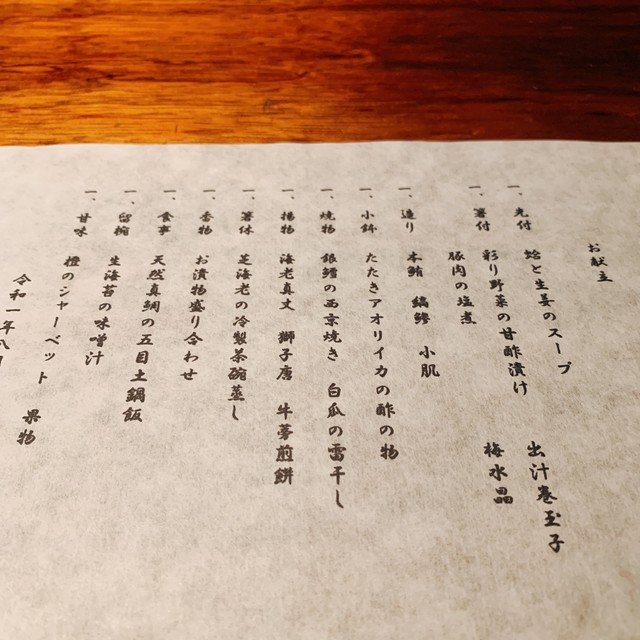 お献立
一、先付 蛤と生姜のスープ
一、箸付 彩り野菜の甘酢漬け 出汁巻玉子
豚肉の塩煮 梅水晶
一、造り 本鮪 縞鯵 小肌
一、小鉢 たたきアオリイカの酢の物
一、焼物 銀鱈の西京焼き 白瓜の雷干し
一、揚物 海老真丈 獅子唐 牛蒡煎餅
一、箸休 芝海老の冷製茶碗蒸し
一、香物 お漬物盛り合わせ
一、食事 天然真鯛の五目土鍋飯
一、留椀 生海苔の味噌汁
一、甘味 橙のシャーベット 果物
令和一年八月